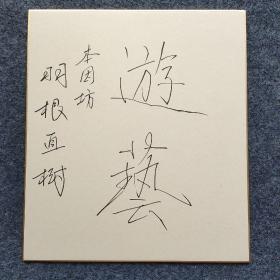 遊藝
本因坊
羽根直樹